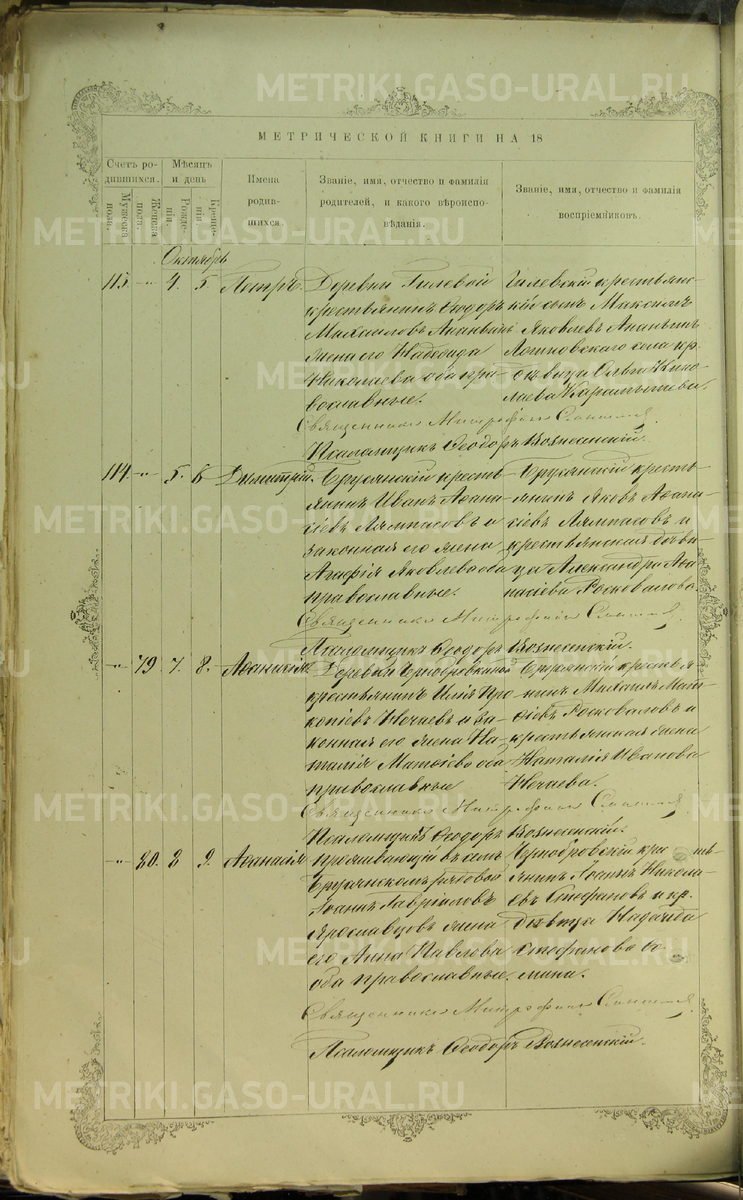 METRIKI.GASO-URAL.RU
МЕТРИЧЕСКОЙ КНИГИ НА 18
Счетъ родившихся.
Мужеска пола.
Женска пола.
Мѣсяцъ и день
Рожденія.
Крещенія.
Имена родившихся.
Званіе, имя, отчество и фамилія родителей, и какого вѣроисповѣданія.
Званіе, имя, отчество и фамилія воспріемниковъ.
Октябрь
113. -"- 4. 5. Петръ.
Деревни Гилевой
крестьянинъ Ѳеодоръ
Михаиловъ Ананьинъ
жена его Надежда
Николаева оба пра-
вославные.
Гилевскій крестьянс-
кій сынъ Максимъ
Яковлевъ Ананьинъ
Логиновскаго села кр.
дѣвица Ольга Нико-
лаева
Священникъ Митрофанъ
Псаломщикъ Ѳеодоръ Вознесенскій.
114. -"- 5. 6. Димитрій.
Бруснскій кресть-
янинъ Иванъ Аѳана-
сіевъ Лямпасовъ и
законная его жена
Агафія Яковлева оба
православные.
кресть-
янинъ Яковъ Аѳана-
сіевъ Лямпасовъ и
крестьянская дѣви-
ца Александра Аѳа-
насіева Росковалова.
Священникъ Митрофанъ
Псаломщикъ Ѳеодоръ Вознесенскій.
-"- 79. 7. 8. Аѳанасія.
Деревни
крестьянинъ Илія Про-
копіевъ Нечаевъ и за-
конная его жена На-
талія Матѳіева оба
православные
крестья-
нинъ Михаилъ Мат-
ѳіевъ Росковаловъ и
крестьянская жена
Наталія Иванова
Нечаева.
Священникъ Митрофанъ
Псаломщикъ Ѳеодоръ Вознесенскій.
-"- 80. 8 9. Аѳанасія
Проживающій въ селѣ
рядовой
Іоаннъ Гавріиловъ
Ярославцовъ жена
его Анна Павлова
оба православные.
Чернобровскій кресть-
янинъ Іоаннъ Никола-
евъ Стефановъ и кр.
дѣвица Надежда
Стефанова
Священникъ Митрофанъ
Псаломщикъ Ѳеодоръ Вознесенскій.